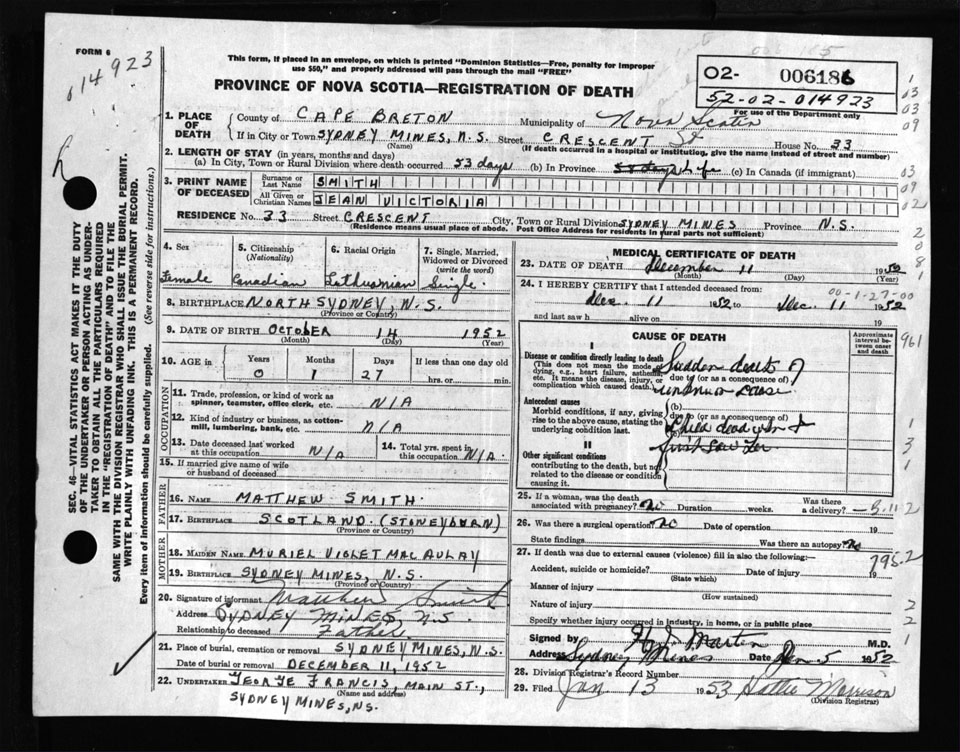 FORM 6
014923
This form, if placed in an envelope, on which is printed "Dominion Statistics—Free, penalty for improper
use $50," and properly addressed will pass through the mail "FREE"
PROVINCE OF NOVA SCOTIA—REGISTRATION OF DEATH
02- 006186
52-02-014923
For use of the Department only
1. PLACE OF DEATH
County of CAPE BRETON Municipality of Nova Scotia
If in City or Town SYDNEY MINES, N.S. Street CRESCENT St House No. 33
(Name) (If death occurred in a hospital or institution, give the name instead of street and number)
2. LENGTH OF STAY (in years, months and days)
(a) In City, Town or Rural Division where death occurred 53 days (b) In Province Life (c) In Canada (if immigrant)
3. PRINT NAME OF DECEASED
Surname or Last Name SMITH
All Given or Christian Names JEAN VICTORIA
RESIDENCE No. 33 Street CRESCENT City, Town or Rural Division SYDNEY MINES Province N.S.
(Residence means usual place of abode. Post Office Address for residents in rural parts not sufficient)
4. Sex Female
5. Citizenship (Nationality) Canadian
6. Racial Origin
7. Single, Married, Widowed or Divorced (write the word) Single
8. BIRTHPLACE NORTH SYDNEY, N.S.
(Province or Country)
9. DATE OF BIRTH OCTOBER 14 1952
(Month) (Day) (Year)
10. AGE in Years Months Days If less than one day old
0 1 27 hrs. or min.
OCCUPATION
11. Trade, profession, or kind of work as
spinner, teamster, office clerk, etc. N/A
12. Kind of industry or business, as cotton-
mill, lumbering, bank, etc. N/A
13. Date deceased last worked
at this occupation N/A
14. Total yrs. spent in
this occupation N/A
15. If married give name of wife
or husband of deceased
FATHER
16. NAME MATTHEW SMITH
17. BIRTHPLACE SCOTLAND. (STONEYBURN)
(Province or Country)
MOTHER
18. MAIDEN NAME MURIEL VIOLET MACAULAY
19. BIRTHPLACE SYDNEY MINES, N.S.
(Province or Country)
20. Signature of informant Matthew Smith
Address SYDNEY MINES, N.S.
Relationship to deceased Father
21. Place of burial, cremation or removal SYDNEY MINES, N.S.
Date of burial or removal DECEMBER 11, 1952
22. UNDERTAKER GEORGE FRANCIS, MAIN ST.,
(Name and address)
SYDNEY MINES, NS.
MEDICAL CERTIFICATE OF DEATH
23. DATE OF DEATH December 11 1952
(Month) (Day)
00-1-27-00
24. I HEREBY CERTIFY that I attended deceased from:
Dec. 11 1952 to Dec. 11 1952
and last saw h alive on 19
CAUSE OF DEATH
Approximate interval between onset and death
I
Disease or condition directly leading to death
(This does not mean the mode of dying, e.g., heart failure, asthenia, etc. It means the disease, injury, or complication which caused death.)
Sudden death of
due to (or as a consequence of)
unknown cause
Antecedent causes
Morbid conditions, if any, giving rise to the above cause, stating the underlying condition last.
(b)
due to (or as a consequence of)
Child dead when I
first saw her
II
Other significant conditions
contributing to the death, but not related to the disease or condition causing it.
25. If a woman, was the death
associated with pregnancy? no Duration weeks. Was there a delivery?
26. Was there a surgical operation? no Date of operation 19
State findings Was there an autopsy? No
27. If death was due to external causes (violence) fill in also the following:—
795.2
Accident, suicide or homicide? Date of injury 19
(State which)
Manner of injury
(How sustained)
Nature of injury
Specify whether injury occurred in industry, in home, or in public place
Signed by Marten M.D.
Address Sydney Mines Date Jan 5 1952
28. Division Registrar's Record Number
29. Filed Jan 13 1953 Hattie Morrison
(Division Registrar)
SEC. 46—VITAL STATISTICS ACT MAKES IT THE DUTY
OF THE UNDERTAKER OR PERSON ACTING AS UNDER-
TAKER TO OBTAIN ALL THE PARTICULARS REQUIRED
IN THE "REGISTRATION OF DEATH" AND TO FILE THE
SAME WITH THE DIVISION REGISTRAR WHO SHALL ISSUE THE BURIAL PERMIT.
WRITE PLAINLY WITH UNFADING INK. THIS IS A PERMANENT RECORD.
Every item of information should be carefully supplied. (See reverse side for instructions.)
1
03
03
09
03
09
02
2
0
8
1
961
1
3
1
2
2
2